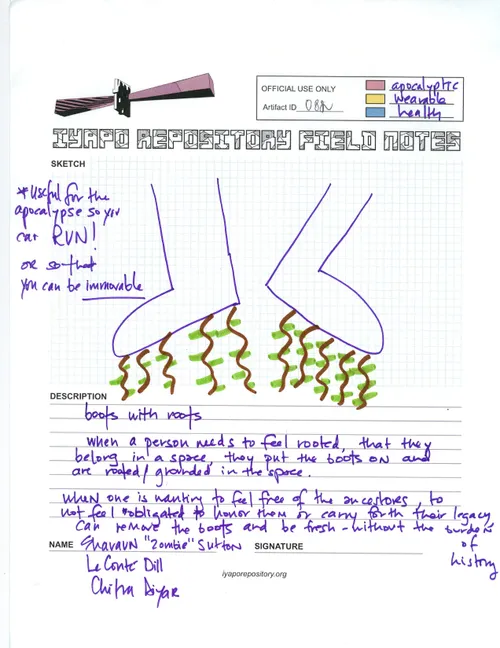 OFFICIAL USE ONLY
Artifact ID 08N
apocalyptic
wearable
health
IYAPO REPOSITORY FIELD NOTES
SKETCH
*Useful for the
apocalypse so you
can RUN!
or so that
you can be immovable
DESCRIPTION
boots with roots
when a person needs to feel rooted, that they
belong in a space, they put the boots on and
are rooted/grounded in the space.
when one is wanting to feel free of the ancestors, to
not feel obligated to honor them or carry forth their legacy
can remove the boots and be fresh - without the burden
of
history
NAME Shavaun "Zombie" Sutton SIGNATURE
LeConté Dill
iyaporepository.org